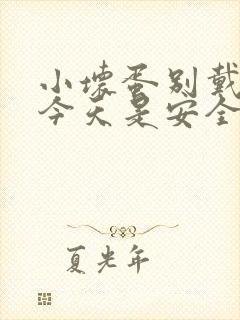 小坏蛋别戴
今天是安全
夏光年